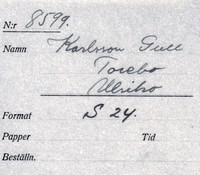 N:r 8599.
Namn Karlsson Gull
Torebo
Ulriko
Format S 24.
Papper Tid
Beställn.